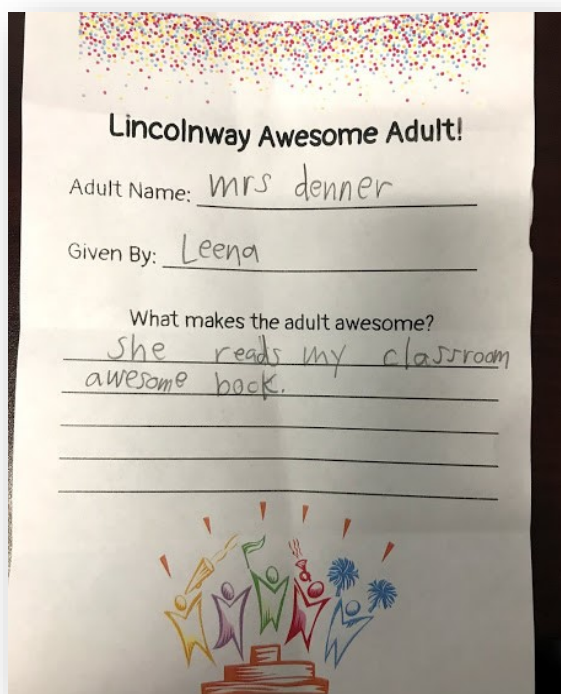 Lincolnway Awesome Adult!
Adult Name: mrs denner
Given By: Leena
What makes the adult awesome?
she reads my classroom
awesome book.